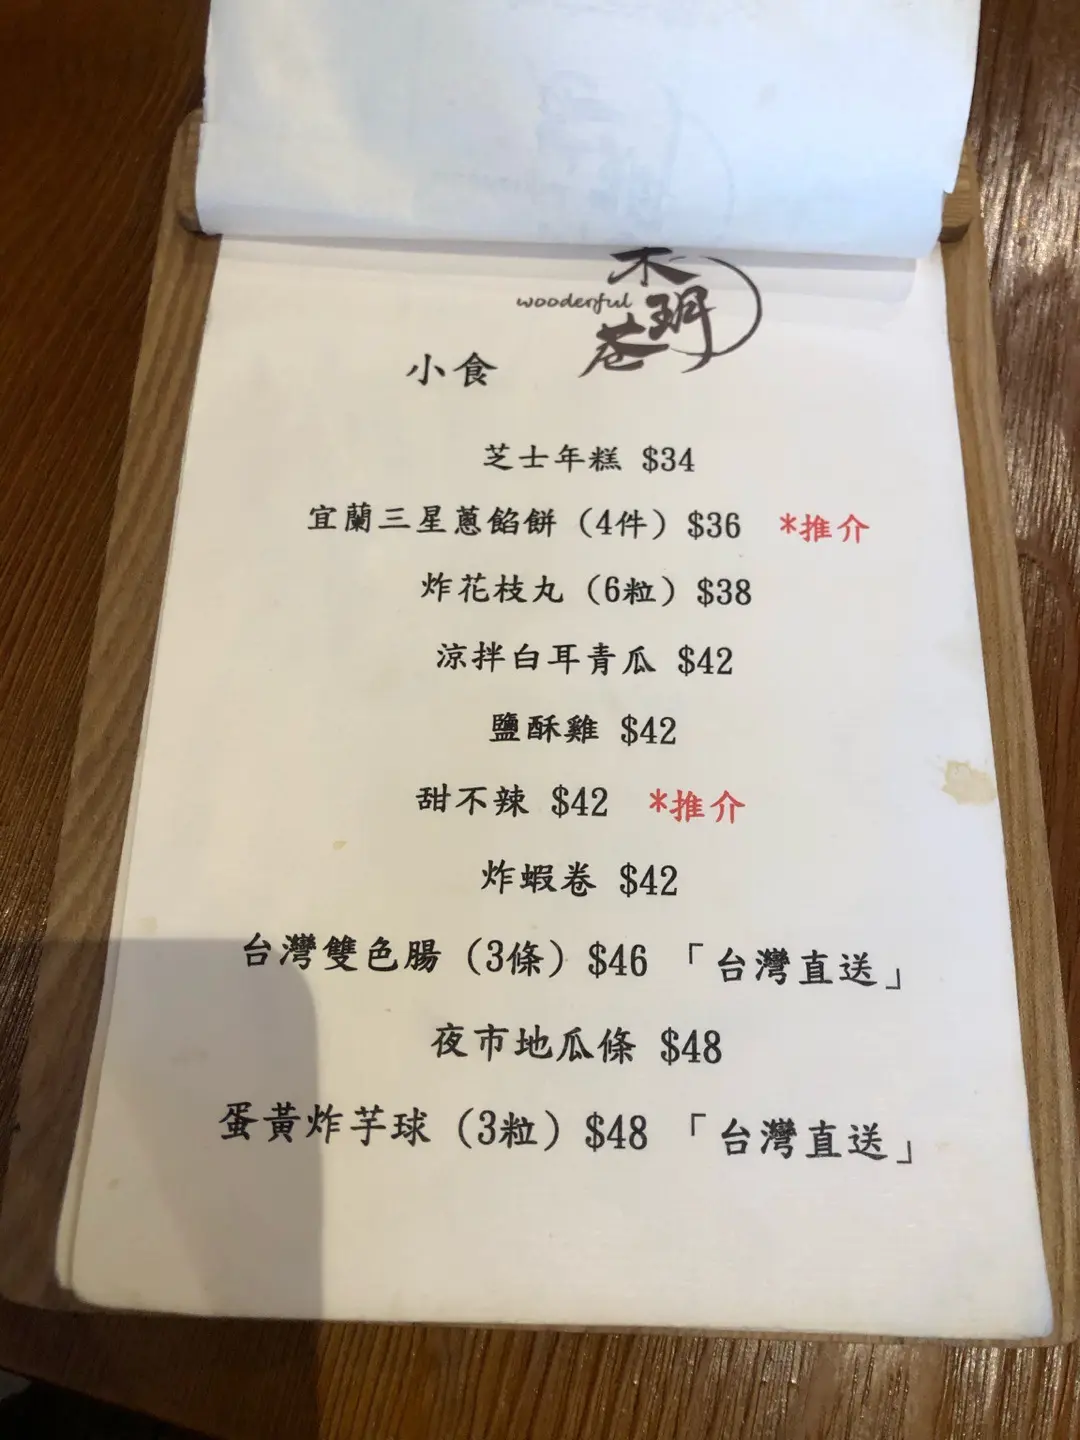 木
wooderful
玥
巷
小食
芝士年糕 $34
宜蘭三星蔥餡餅（4件）$36 *推介
炸花枝丸（6粒）$38
涼拌白耳青瓜 $42
鹽酥雞 $42
甜不辣 $42 *推介
炸蝦卷 $42
台灣雙色腸（3條）$46 「台灣直送」
夜市地瓜條 $48
蛋黃炸芋球（3粒）$48 「台灣直送」